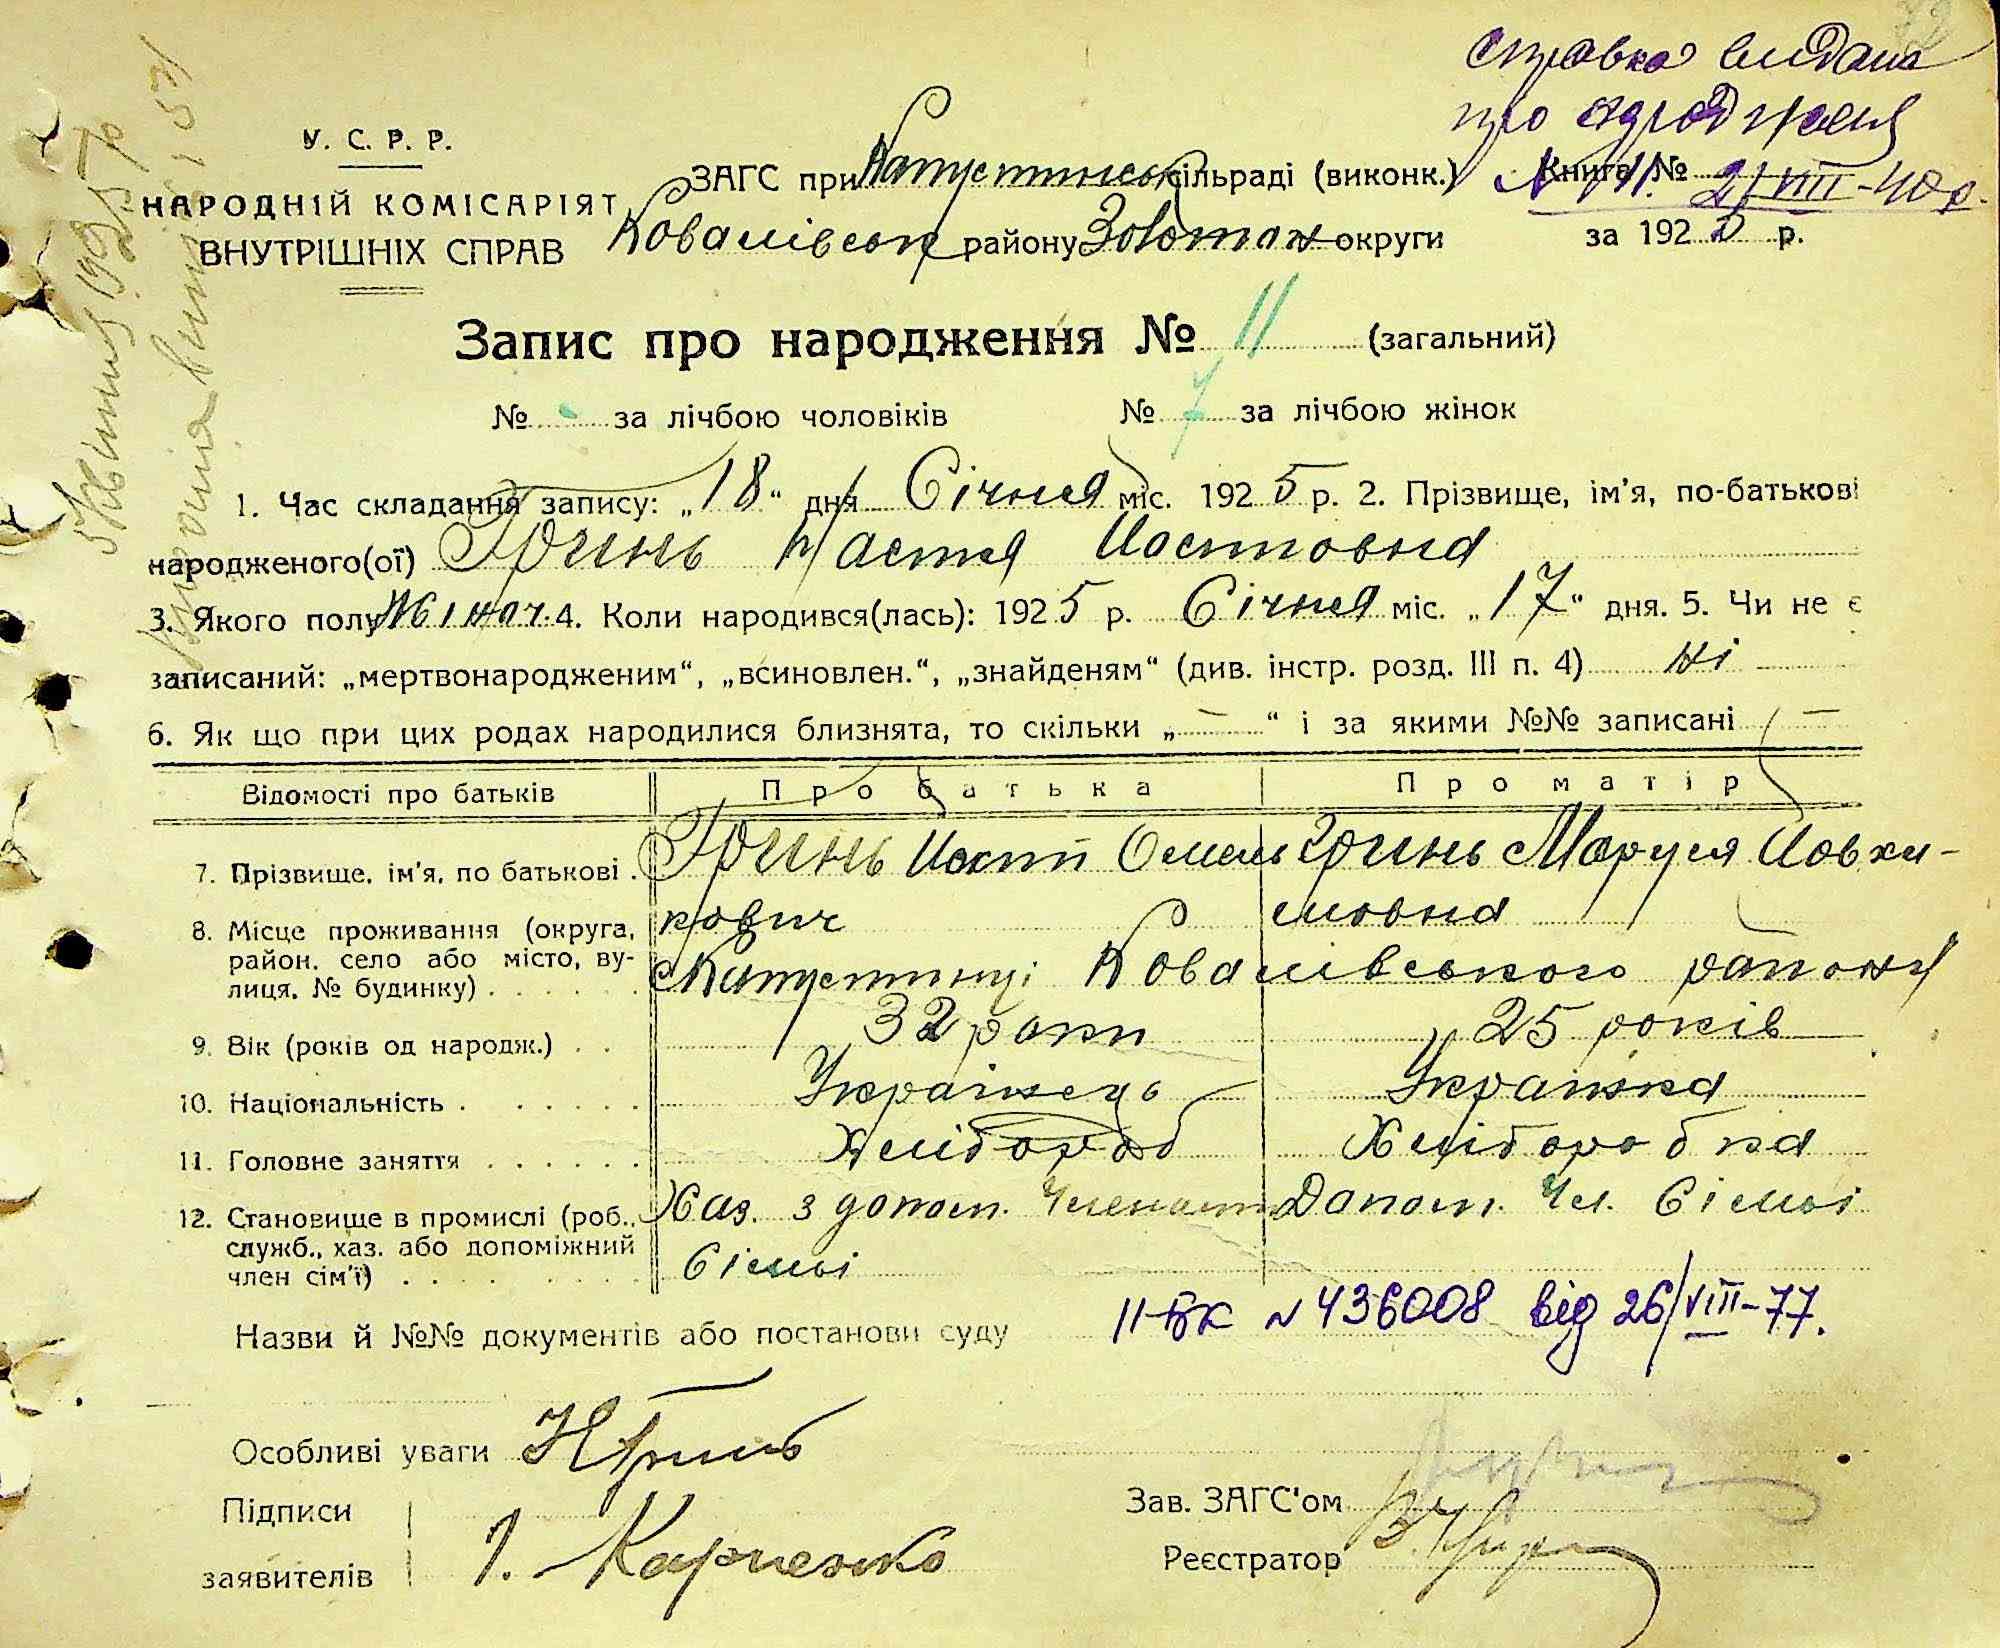 справка видана
про народження
У. С. Р. Р.
НАРОДНІЙ КОМІСАРІЯТ
ВНУТРІШНІХ СПРАВ
ЗАГС при Капустинськ сільраді (виконк.) Книга №
21/VIII-40 р.
Ковалівськ району Золотон округи за 192 5 р.
Запис про народження № 11 (загальний)
№ за лічбою чоловіків № 7 за лічбою жінок
1. Час складання запису: „18“ дня Січня міс. 1925 р. 2. Прізвище, ім'я, по-батькові
народженого(ої) Гринь Настя Иостовна
3. Якого полу Жіноч. 4. Коли народився(лась): 1925 р. Січня міс. „17“ дня. 5. Чи не є
записаний: „мертвонародженим“, „всиновлен.“, „знайденям“ (див. інстр. розд. III п. 4) Ні
6. Як що при цих родах народилися близнята, то скільки „—“ і за якими №№ записані —
Відомості про батьків Про батька Про матір
7. Прізвище, ім'я, по батькові . Гринь Иостп Омель Гринь Маруся Иовхи-
кович мовна
8. Місце проживання (округа,
район, село або місто, ву-
лиця, № будинку) . . . . . . с Капустинці Ковалівського району
9. Вік (років од народж.) . . 32 роки 25 років
10. Національність . . . . . . Українець Українка
11. Головне заняття . . . . . . Хлібороб Хлібробка
12. Становище в промислі (роб., Хаз. з допом. Членами Допом. Чл. Сімьі
служб., хаз. або допоміжний
член сім'ї) . . . . . . Сімьі
Назви й №№ документів або постанови суду II-БК № 436008 від 26/VIII-77.
Особливі уваги
Підписи
заявителів І. Карпенко
Зав. ЗАГС'ом
Реєстратор